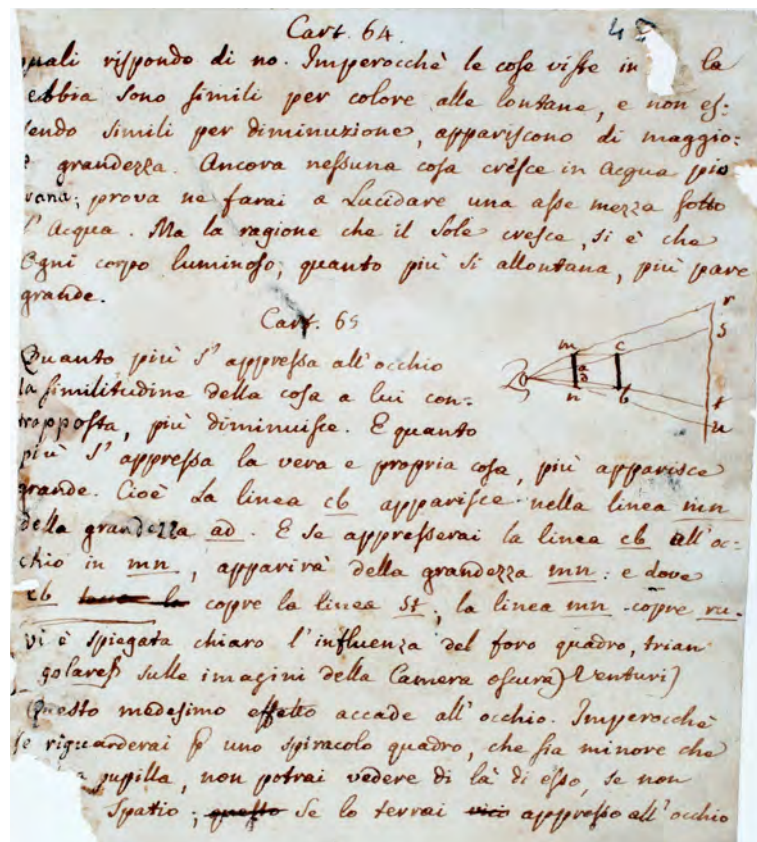 Cart. 64.
quali rispondo di no. Imperocchè le cose viste in la
ebbia sono simili per colore alle lontane, e non es:
sendo simili per diminuzione, appariscono di maggio:
e grandezza. Ancora nessuna cosa cresce in Acqua pio
vana; prova ne farai a Lucidare una asse mezza sotto
l'Acqua. Ma la ragione che il Sole cresce, si è che
Ogni corpo luminoso, quanto più si allontana, più pare
grande.
Cart. 65
Quanto più s'appressa all'occhio
la similitudine della cosa a lui con:
trapposta, più diminuisce. E quanto
più s'appressa la vera e propria cosa, più apparisce
grande. Cioè La linea cb apparisce nella linea mn
della grandezza ad. E se appresserai la linea cb all'oc:
chio in mn, apparirà della grandezza mn: e dove
cb copre la linea St; la linea mn copre ru.
vi è spiegata chiaro l'influenza del foro quadro, trian
golare sulle imagini della Camera oscura) Venturi)
Questo medesimo effetto accade all'occhio. Imperocchè
se riguarderai p uno spiracolo quadro, che sia minore che
pupilla, non potrai vedere di là di esso, se non
Spatio; questo Se lo terrai vici appresso all'occhio
m c r s
a d
n b t u